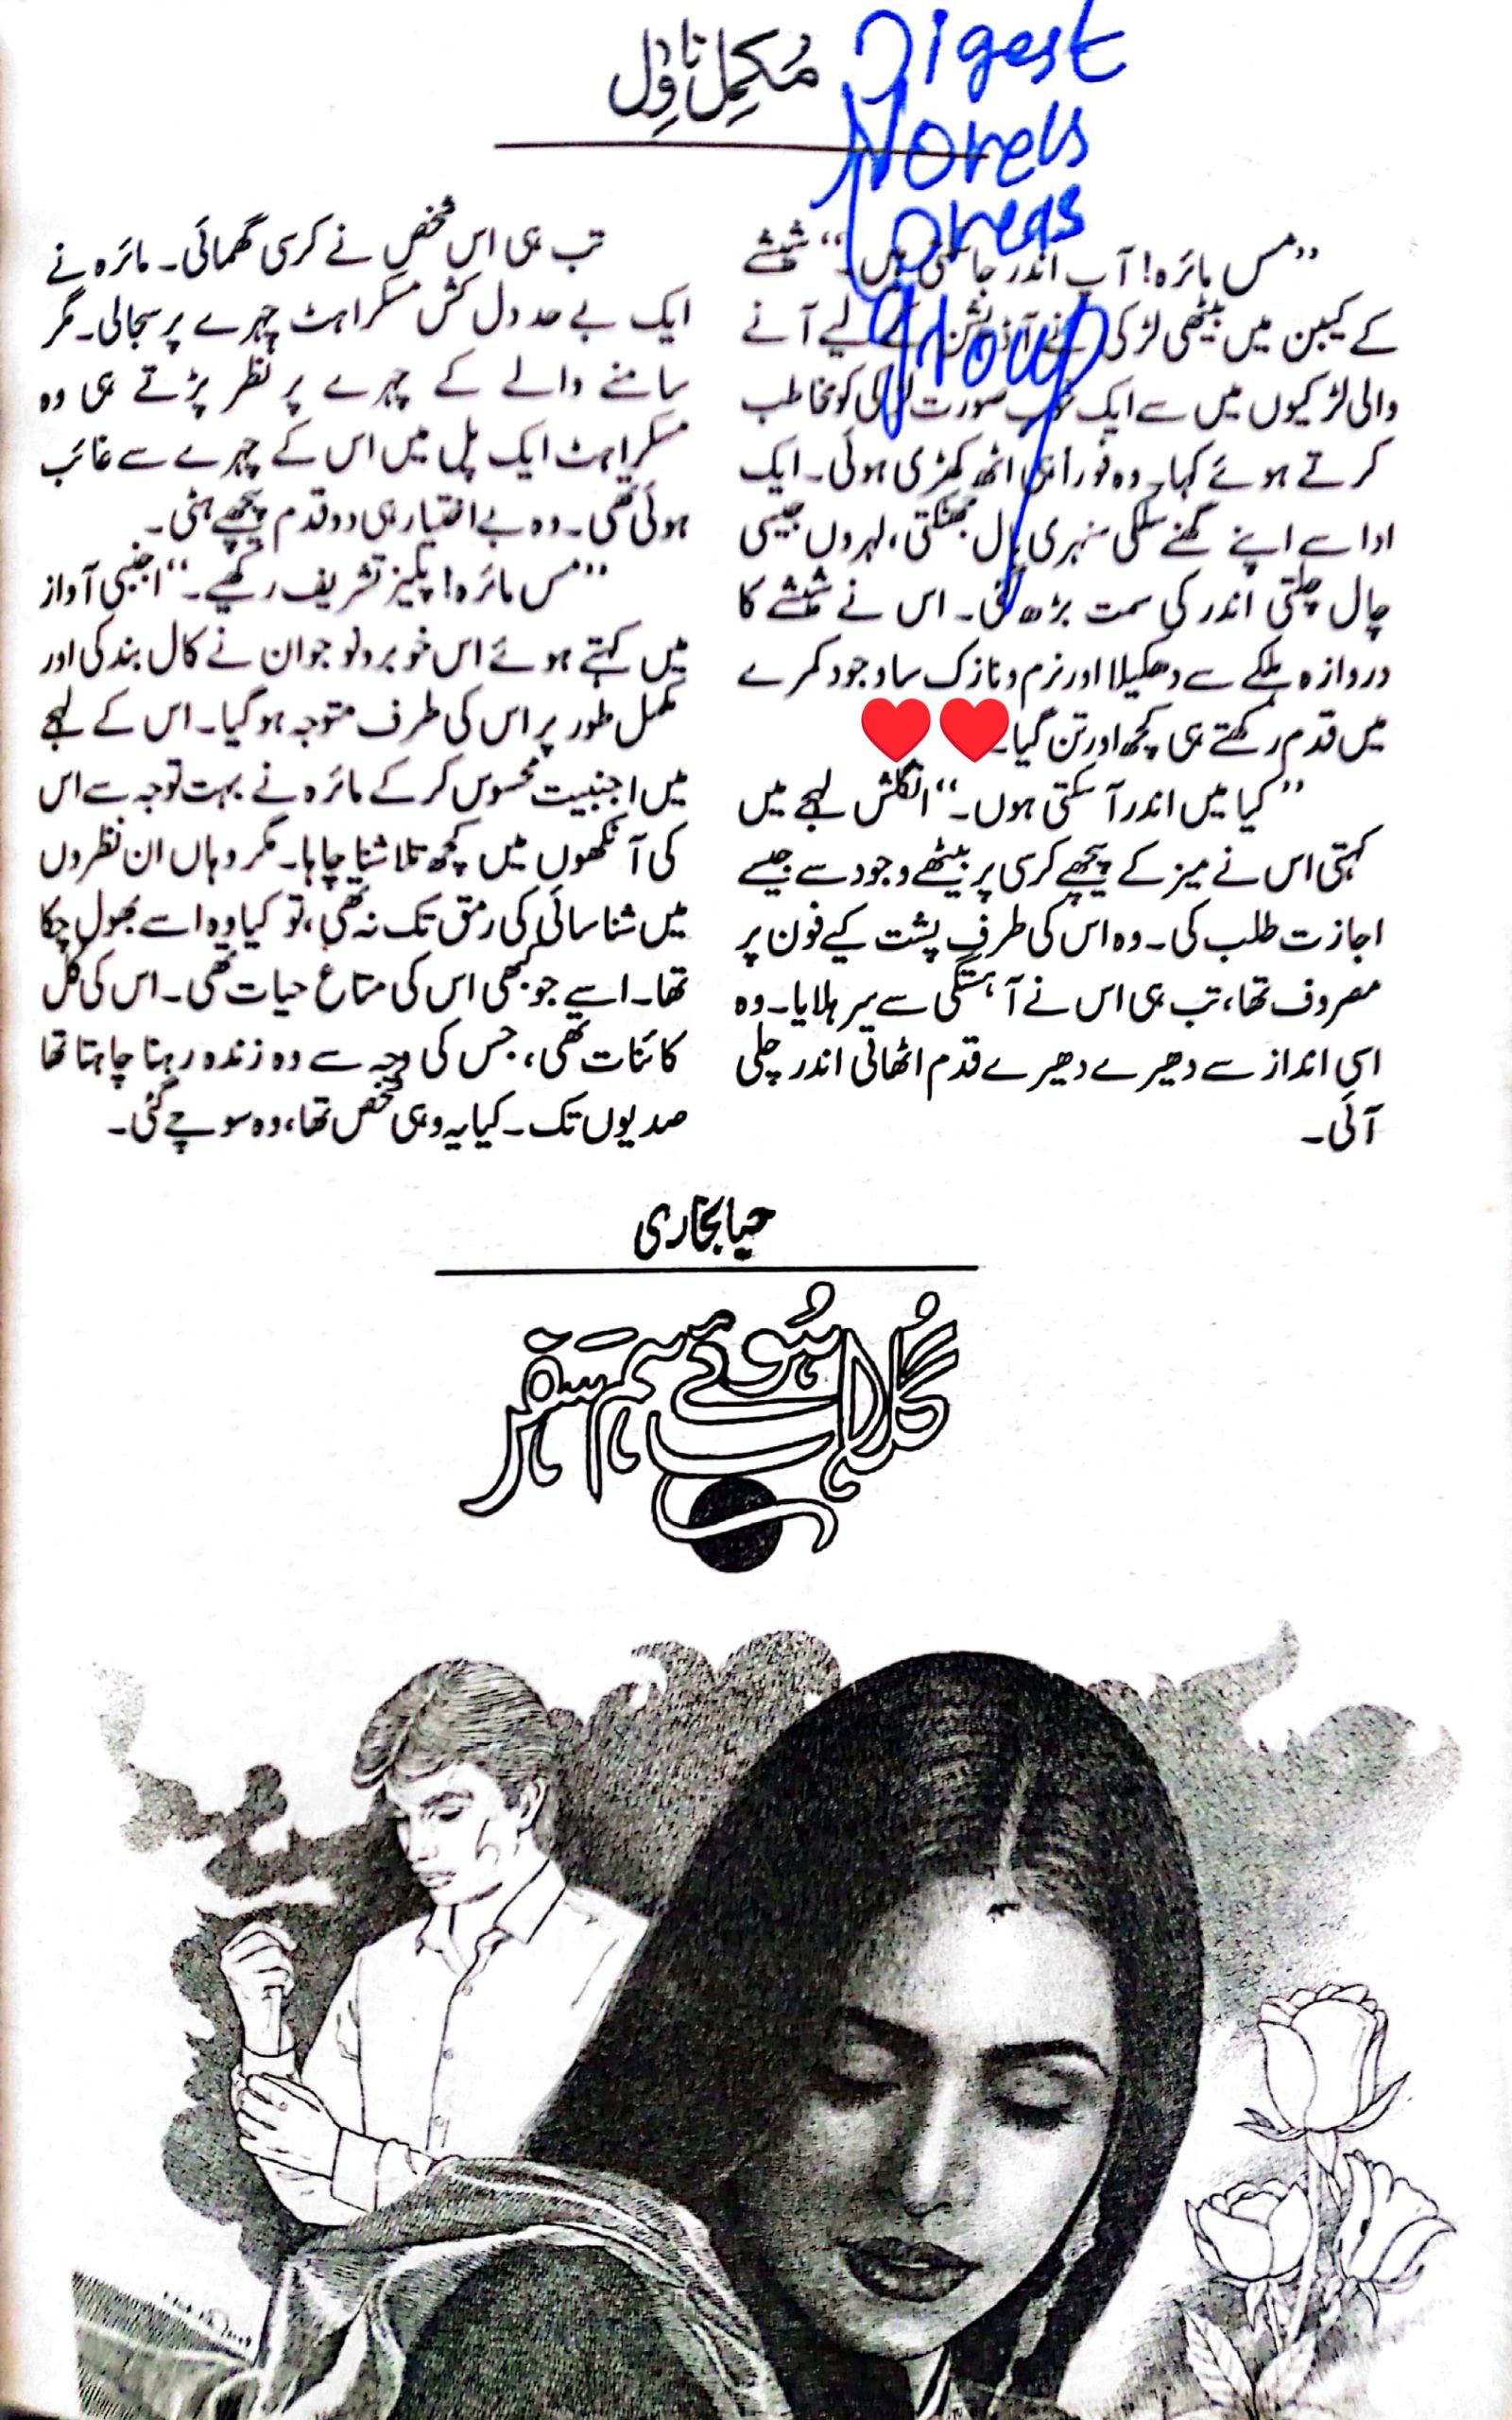 مکمل ناول
Digest
Novels
Lovers
group
”مس مائرہ! آپ اندر جا سکتی ہیں۔“ شیشے
کے کیبن میں بیٹھی لڑکی نے آڈیشن کے لیے آنے
والی لڑکیوں میں سے ایک خوب صورت لڑکی کو مخاطب
کرتے ہوئے کہا۔ وہ فوراً ہی اٹھ کھڑی ہوئی۔ ایک
ادا سے اپنے گھنے سلکی سنہری بال جھٹکتی، لہروں جیسی
چال چلتی اندر کی سمت بڑھ گئی۔ اس نے شیشے کا
دروازہ ہلکے سے دھکیلا اور نرم و نازک سا وجود کمرے
میں قدم رکھتے ہی کچھ اور تن گیا۔
”کیا میں اندر آ سکتی ہوں۔“ انگلش لہجے میں
کہتی اس نے میز کے پیچھے کرسی پر بیٹھے وجود سے جیسے
اجازت طلب کی۔ وہ اس کی طرف پشت کیے فون پر
مصروف تھا، تب ہی اس نے آہستگی سے سر ہلایا۔ وہ
اسی انداز سے دھیرے دھیرے قدم اٹھاتی اندر چلی
آئی۔
تب ہی اس شخص نے کرسی گھمائی۔ مائرہ نے
ایک بے حد دل کش مسکراہٹ چہرے پر سجالی۔ مگر
سامنے والے کے چہرے پر نظر پڑتے ہی وہ
مسکراہٹ ایک پل میں اس کے چہرے سے غائب
ہوئی تھی۔ وہ بے اختیار ہی دو قدم پیچھے ہٹی۔
”مس مائرہ! پلیز تشریف رکھیے۔“ اجنبی آواز
میں کہتے ہوئے اس خوبرو نوجوان نے کال بند کی اور
مکمل طور پر اس کی طرف متوجہ ہوگیا۔ اس کے لہجے
میں اجنبیت محسوس کر کے مائرہ نے بہت توجہ سے اس
کی آنکھوں میں کچھ تلاشنا چاہا۔ مگر وہاں ان نظروں
میں شناسائی کی رمق تک نہ تھی، تو کیا وہ اسے بھول چکا
تھا۔ اسے جو کبھی اس کی متاع حیات تھی۔ اس کی کل
کائنات تھی، جس کی وجہ سے وہ زندہ رہنا چاہتا تھا
صدیوں تک۔ کیا یہ وہی شخص تھا، وہ سوچے گئی۔
حیا بخاری
گلاب ہوئے ہم سفر